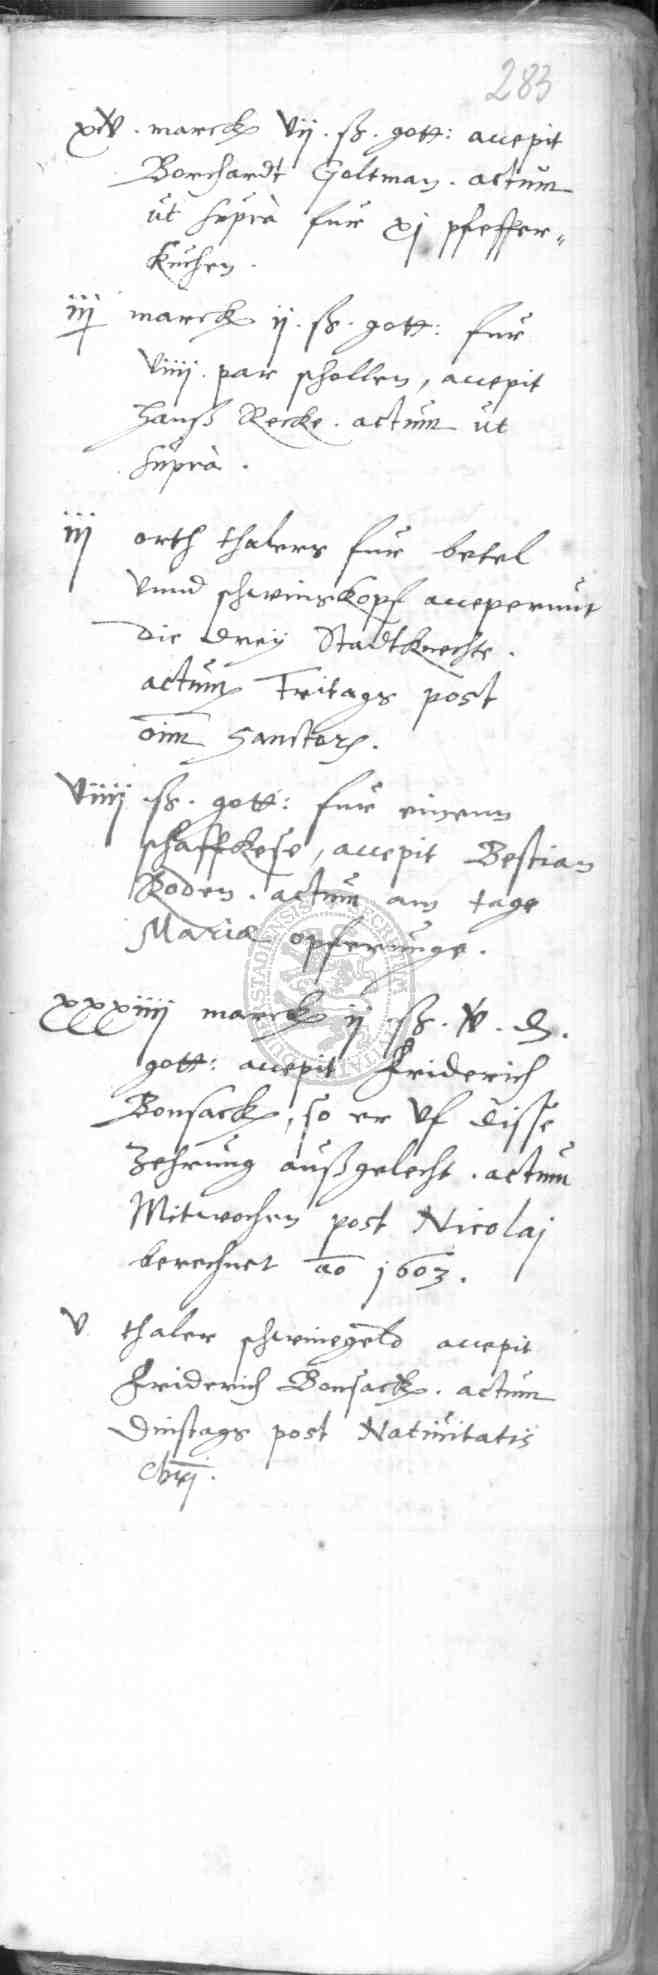 283
xv . marck vij . ß . gott: accepit
Borchardt Goltman . actum
ut supra fur xj pfeffer„
kuchen .
iij marck ij . ß . gott: fur
viiij . par schollen, accepit
Hanß Recke . actum ut
supra .
iij orth thalers fur betel
vnnd schweinskopf acceperunt
die dreÿ Stadtknechte .
actum Fritags post
oim Sanctor .
viiij ß . gott: fur einenn
schaffkese, accepit Bestian
Roden . actum am tage
Mariæ opferunge .
xxxiiij marck ij ß . v . d .
gott: accepit Friderich
Bonsack, so er vf disse
Zehrung außgelecht . actum
Mitwochen post Nicolaj
berechnet ao 1603 .
v thaler schweinegeld accepit
Friderich Bonsack . actum
Dinstags post Natiuitatis
Chrj .